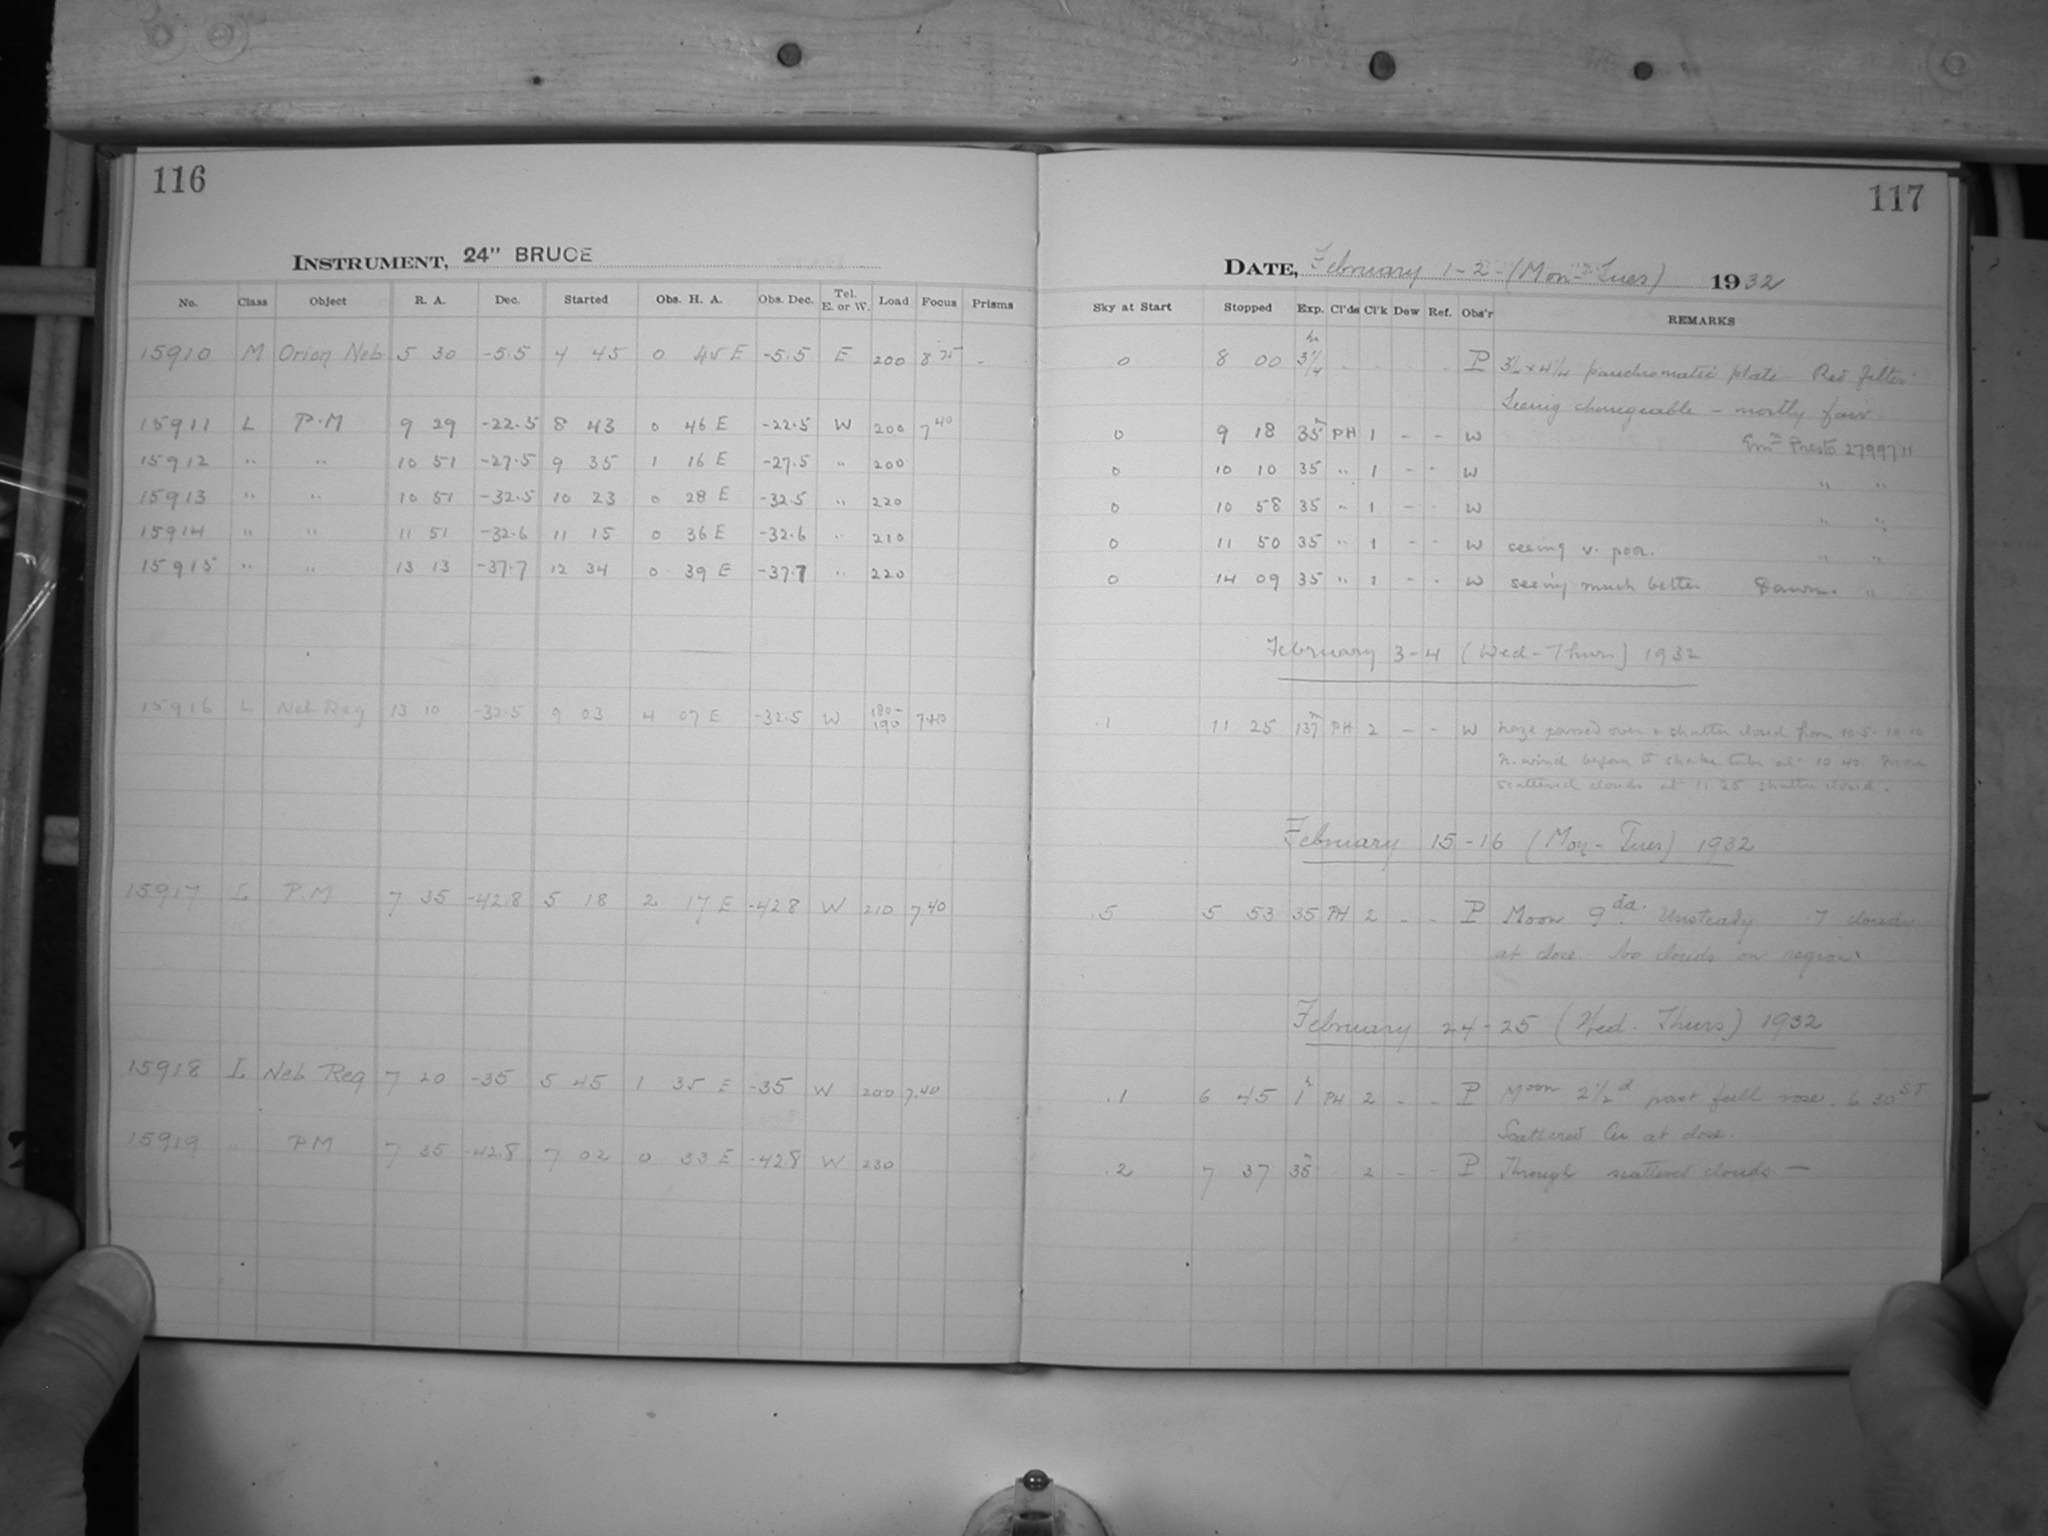 116
INSTRUMENT, 24" BRUCE
No. Class Object R. A. Dec. Started Obs. H. A. Obs. Dec. Tel. E. or W. Load Focus Prisms
15910 M Orion Neb 5 30 -5.5 4 45 0 45 E -5.5 E 200 8.25 -
15911 L P.M 9 29 -22.5 8 43 0 46 E -22.5 W 200 7 40
15912 " " 10 51 -27.5 9 35 1 16 E -27.5 " 200
15913 " " 10 51 -32.5 10 23 0 28 E -32.5 " 220
15914 " " 11 51 -32.6 11 15 0 36 E -32.6 " 210
15915 " " 13 13 -37.7 12 34 0 39 E -37.7 " 220
15916 L Neb Reg 13 10 -32.5 9 03 4 07 E -32.5 W 180-190 7.40
15917 L P.M 7 35 -42.8 5 18 2 17 E -42.8 W 210 7 40
15918 L Neb Reg 7 20 -35 5 45 1 35 E -35 W 200 7.40
15919 " PM 7 35 -42.8 7 02 0 33 E -42.8 W 230
117
DATE, February 1-2 - (Mon-Tues) 1932
Sky at Start Stopped Exp. Cl'ds Cl'k Dew Ref. Obs'r REMARKS
0 8 00 3 1/4 h - - P 3 1/4 x 4 1/4 panchromatic plate Red filter
Seeing changeable - mostly fair.
0 9 18 35m PH 1 - - W Emn Presto 2799711
0 10 10 35 " 1 - - W " "
0 10 58 35 " 1 - - W " "
0 11 50 35 " 1 - - W seeing v. poor. " "
0 14 09 35 " 1 - - W seeing much better Dawn. "
February 3-4 (Wed-Thurs) 1932
.1 11 25 137m PH 2 - - W haze passed over & shutter closed from 10.5-10.10
N. wind began to shake tube at 10 40
scattered clouds at 11.25 shutter closed.
February 15-16 (Mon-Tues) 1932
.5 5 53 35 PH 2 - - P Moon 9 da. Unsteady .7 clouds
at close. No clouds on region.
February 24-25 (Wed. Thurs) 1932
.1 6 45 1h PH 2 - - P Moon 2 1/2 d past full rose 6 30 S.T
Scattered Cu at close.
.2 7 37 35m 2 - - P Through scattered clouds. —